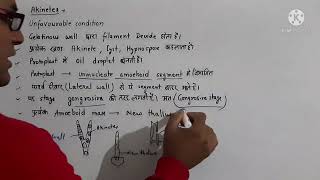 Akinetes
Unfavourable condition
Gelatinous wall द्वारा filament Devide होता है।
प्रत्येक खण्ड Akinete, Cyst, Hypnospore कहलाता है।
Protoplast में oil droplet बनती है।
Protoplast → uninucleate amoeboid segment में विभाजित
पार्श्व दीवार (Lateral wall) से ये segment बाहर आते हैं।
यह stage gongrosira की तरह लगती है। अतः (Gongrosira stage)
प्रत्येक Amoeboid mass → New thallus
Akinetes
wall
new thallus